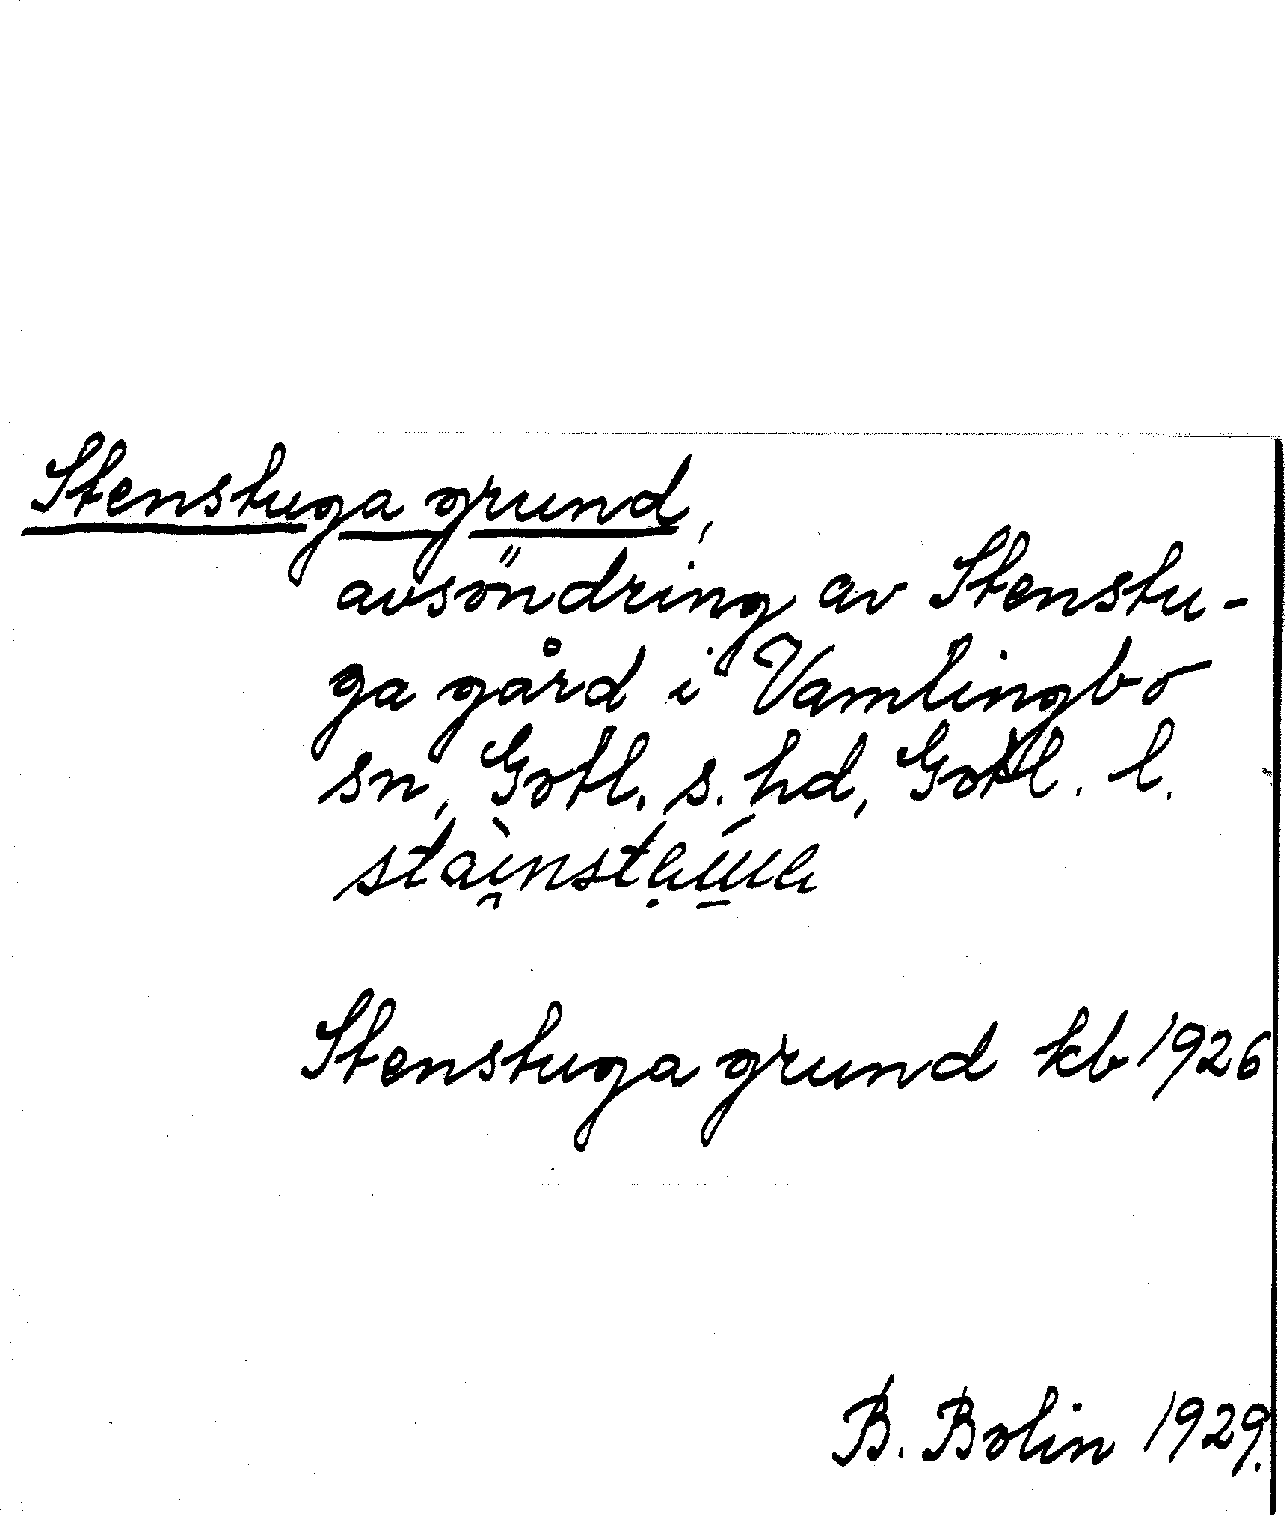 Stenstuga grund,
avsöndring av Stenstu-
ga gård i Vamlingbo
sn, Gotl. s. hd, Gotl. l.
Stenstuga grund kb 1926
B. Bolin 1929.